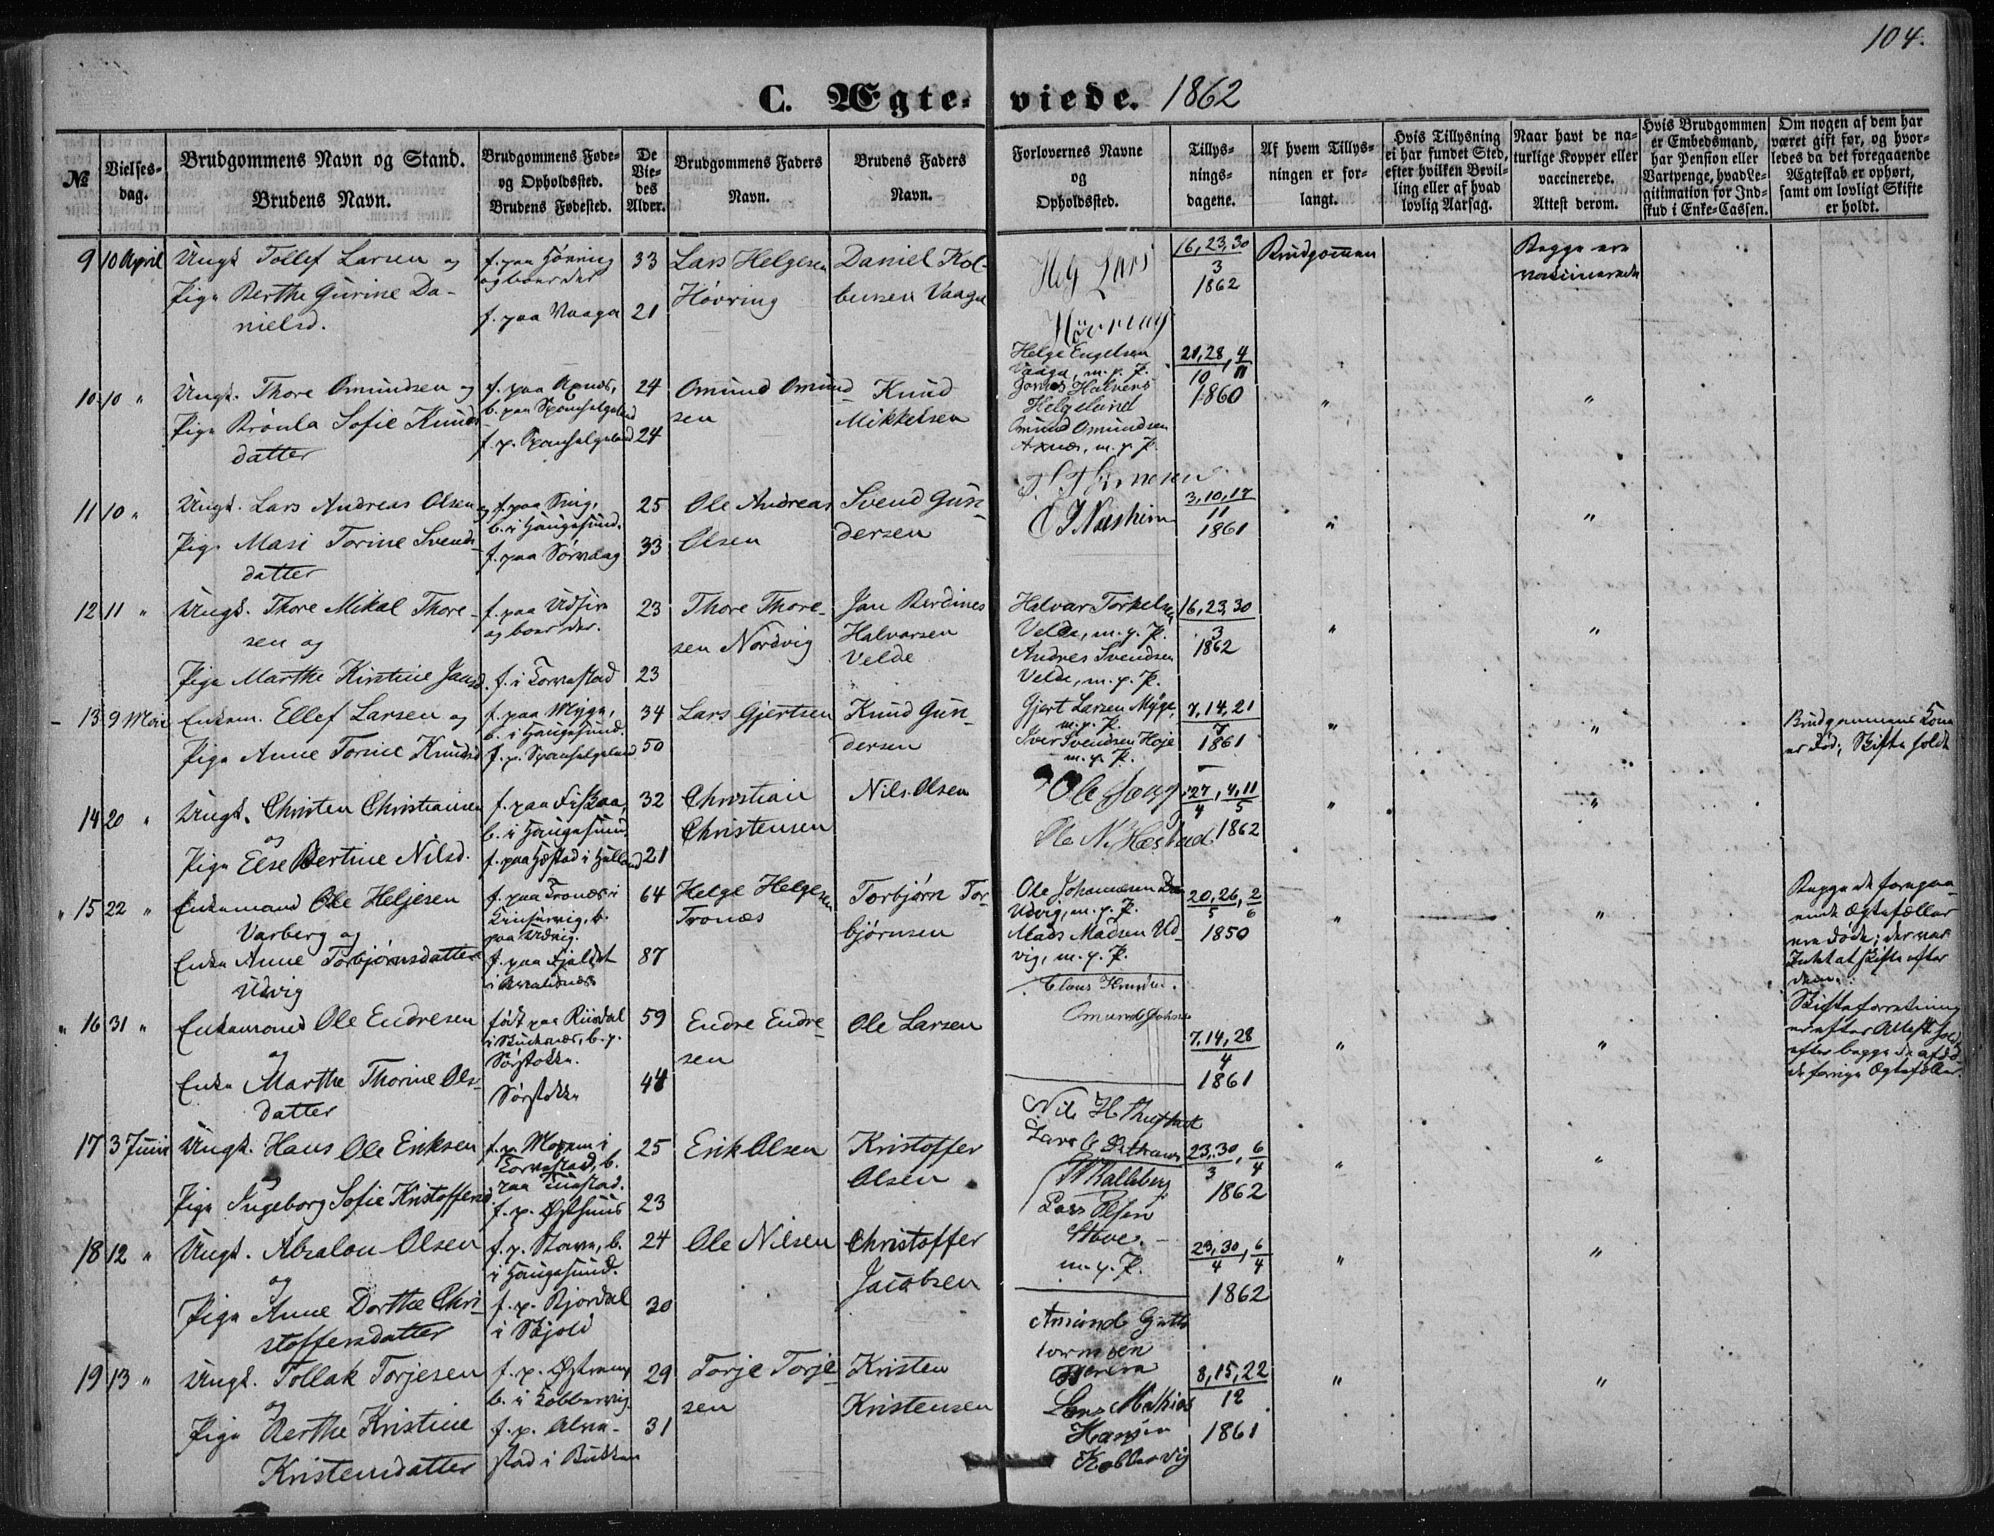 104.
C. Ægte- viede. 1862
№
Vielses-
dag.
Brudgommens Navn og Stand.
Brudens Navn.
Brudgommens Føde-
og Opholdssted.
Brudens Fødested.
De
Vie-
des
Alder.
Brudgommens Faders
Navn.
Brudens Faders
Navn.
Forlovernes Navne
og
Opholdssted.
Tillys-
nings-
dagene.
Af hvem Tillys-
ningen er for-
langt.
Hvis Tillysning
ei har fundet Sted,
efter hvilken Bevil-
ling eller af hvad
lovlig Aarsag.
Naar havt de na-
turlige Kopper eller
vaccinerede.
Attest derom.
Hvis Brudgommen
er Embedsmand,
har Pension eller
Vartpenge, hvad Le-
gitimation for Ind-
skud i Enke-Cassen.
Om nogen af dem har
været gift før, og hvor-
ledes da det foregaaende
Ægteskab er ophørt,
samt om lovligt Skifte
er holdt.
9 10 April Ungk. Tollef Larsen og
Pige Berthe Gurine Da-
nielsd.
f. paa Høvring
og boer der
f. paa Vaage
33
21
Lars Helgesen
Høvring
Daniel Kol-
bensen Vaage
Lars
Høvring
Helge Engelsen
Vaage, m. p. P.
16, 23, 30
3
1862
Brudgommen
Begge ere
vaccinerede
10 10 " Ungk. Thore Omundsen og
Pige Brønla Sofie Knuds
datter
f. paa Axnæs,
b. paa Spanhelgeland
f. p. Spanhelgeland
24
24
Omund Omund-
sen
Knud
Mikkelsen
Jones Halvers
Helgeland
Omund Omundsen
Axnæs, m. p. P.
21, 28, 4
10 11
1860
" "
11 10 " Ungk. Lars Andreas Olsen og
Pige Masi Torine Svends
datter
b. i Haugesund.
f. paa Sørvaag
25
33
Ole Andreas
Olsen
Svend Gun-
dersen
3, 10, 17
11
1861
" "
12 11 " Ungk. Thore Mikal Thore-
sen og
Pige Marthe Kirstine Jansd.
f. paa Udsire
og boer der.
f. i Torvestad
23
23
Thore Thore-
sen Nordvig
Jan Berdines
Halvorsen
Velde
Halvar Torkelsen
Velde, m. p. P.
Andres Svendsen
Velde, m. p. P.
16, 23, 30
3
1862
" "
13 9 Mai Enkem. Ellef Larsen og
Pige Anne Torine Knudsd
f. paa Myge,
b. i Haugesund.
f. p. Spanhelgeland
34
50
Lars Gjertsen
Knud Gun-
dersen
Gjert Larsen Myge,
m. p. P.
Iver Svendsen Høje
m. p. P.
7, 14, 21
7
1861
" "
Brudgommens Kone
er død; Skifte holdt
14 20 " Ungk. Christen Christiansen
og
Pige Else Bertine Nilsd.
f. paa Fiskaa,
b. i Haugesund.
32
21
Christian
Christensen
Nils Olsen
Ole N. Hæstad
27, 4, 11
4 5
1862
" "
" 15 22 " Enkemand Ole Heljesen
Varberg og
Enke Anne Torbjørnsdatter
Udvig
f. paa Tronæs i
Kinservig, b.
paa Udvig.
f. paa Fjeldet
i Avaldsnæs
64
87
Helge Helgesen
Tronæs
Torbjørn Tor-
bjørnsen
Ole Johannesen
Udvig, m. p. P.
Mads Madsen Ud-
vig, m. p. P.
20, 26, 2
5 6
1850
" "
Begge de foregaa-
ende Ægtefæller
ere døde; der var
Intet at skifte efter
dem.
" 16 31 " Enkemand Ole Endresen
og
Enke Marthe Thorine Ols-
datter
født paa
b. p.
Sørstokke.
Sørstokke
59
44
Endre Endre-
sen
Ole Larsen
7, 14, 28
4
1861
" "
Skifteforretning
er efter Attest hold
efter begge de afdø
de forrige Ægtefæller.
17 3 Juni Ungk. Hans Ole Eriksen
og
Pige Ingeborg Sofie Kristoffersd
Torvestad, b.
25
23
Erik Olsen
Kristoffer
Olsen
23, 30, 6
3 4
1862
" "
18 12 " Ungk. Absalon Olsen
og
Pige Anne Dorthe Chri-
stoffersdatter
f. p. Stove, b.
i Haugesund.
f. p. Bjordal
i Skjold
24
30
Ole Nilsen
Christoffer
Jacobsen
Lars Olsen
Stove.
m. p. P.
23, 30, 6
4 4
1862
" "
19 13 " Ungk. Tollak Torjesen
og
Pige Berthe Kristine
Kristensdatter
b. i Kobbervig
29
31
Torje Torje-
sen
Kristen
Kristensen
Lars Mathias
Hansen
Kobbervig
8, 15, 22
12
1861
" "